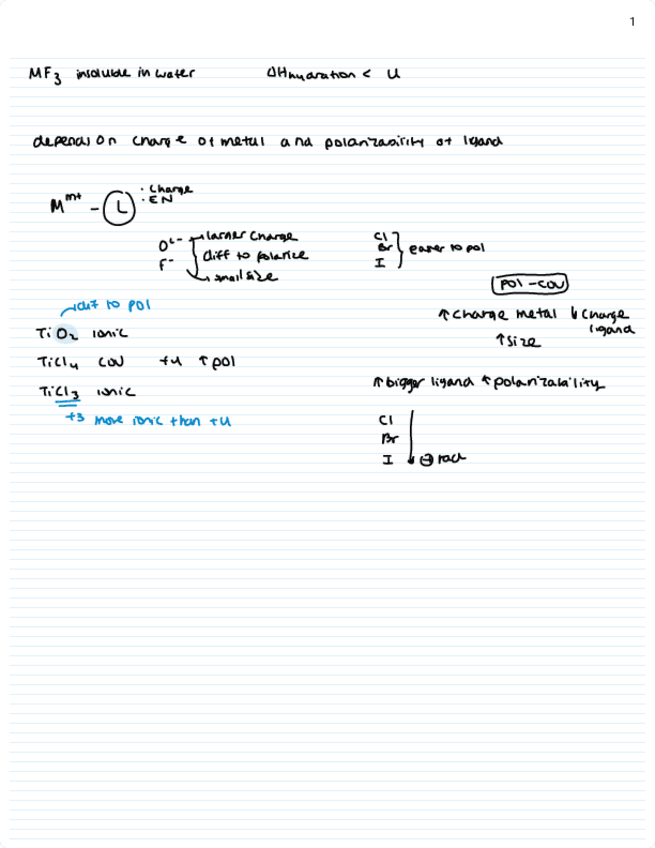 1
MF3 insoluble in water ΔHhydration < U
depends on charge of metal and polarizability of ligand
M^m+ - L : charge
: EN
O2- larger charge
F- diff to polarize
small size
Cl
Br easier to pol
I
pol - cov
↑ charge metal ↓ charge ligand
↑ size
diff to pol
TiO2 ionic
TiCl4 cov +4 ↑ pol
TiCl3 ionic
+3 more ionic than +4
↑ bigger ligand ↑ polarizability
Cl
Br
I ⊖